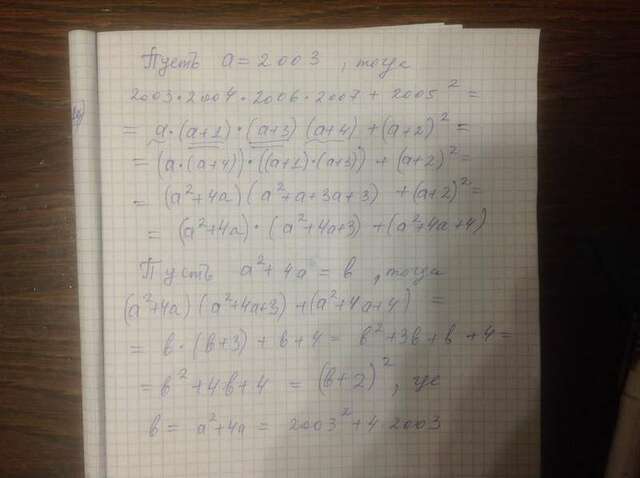 Пусть a = 2003, тогда
2003·2004·2006·2007 + 2005² =
= a·(a+1)·(a+3)(a+4) + (a+2)² =
= (a·(a+4))·((a+1)·(a+3)) + (a+2)² =
= (a²+4a)(a²+a+3a+3) + (a+2)² =
= (a²+4a)·(a²+4a+3) + (a²+4a+4)
Пусть a²+4a = b, тогда
(a²+4a)(a²+4a+3) + (a²+4a+4) =
= b·(b+3) + b+4 = b²+3b+b+4 =
= b²+4b+4 = (b+2)², где
b = a²+4a = 2003²+4·2003